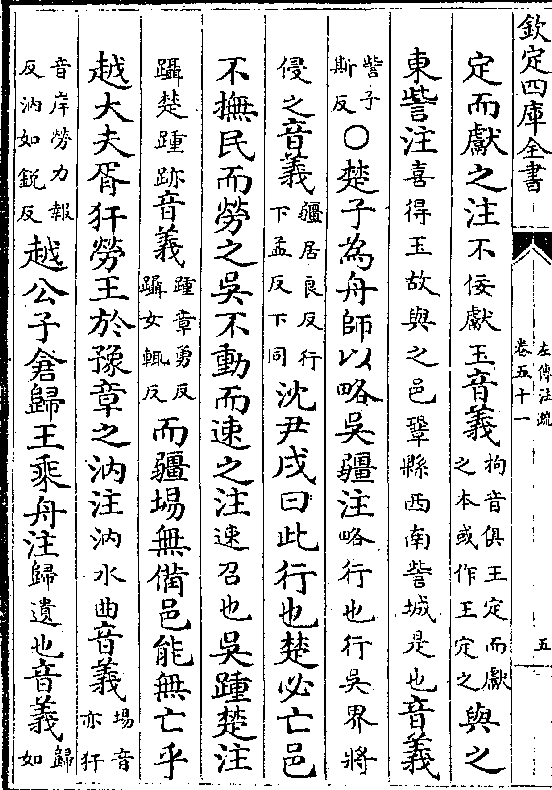 欽定四庫全書
左傳注疏
卷五十一
五
定而獻之注不佞獻玉音義拘音俱王定而獻之本或作王定之與之
東訾注喜得玉故與之邑鞏縣西南訾城是也音義
訾子斯反○楚子為舟師以略吳疆注略行也行吳界將
侵之音義疆居良反行下孟反下同沈尹戌曰此行也楚必亡邑
不撫民而勞之吳不動而速之注速召也吳踵楚注
躡楚踵跡音義踵章勇反躡女輒反而疆埸無備邑能無亡乎
越大夫胥犴勞王於豫章之汭注汭水曲音義埸音亦犴
音岸勞力報反汭如銳反越公子倉歸王乘舟注歸遺也音義歸如